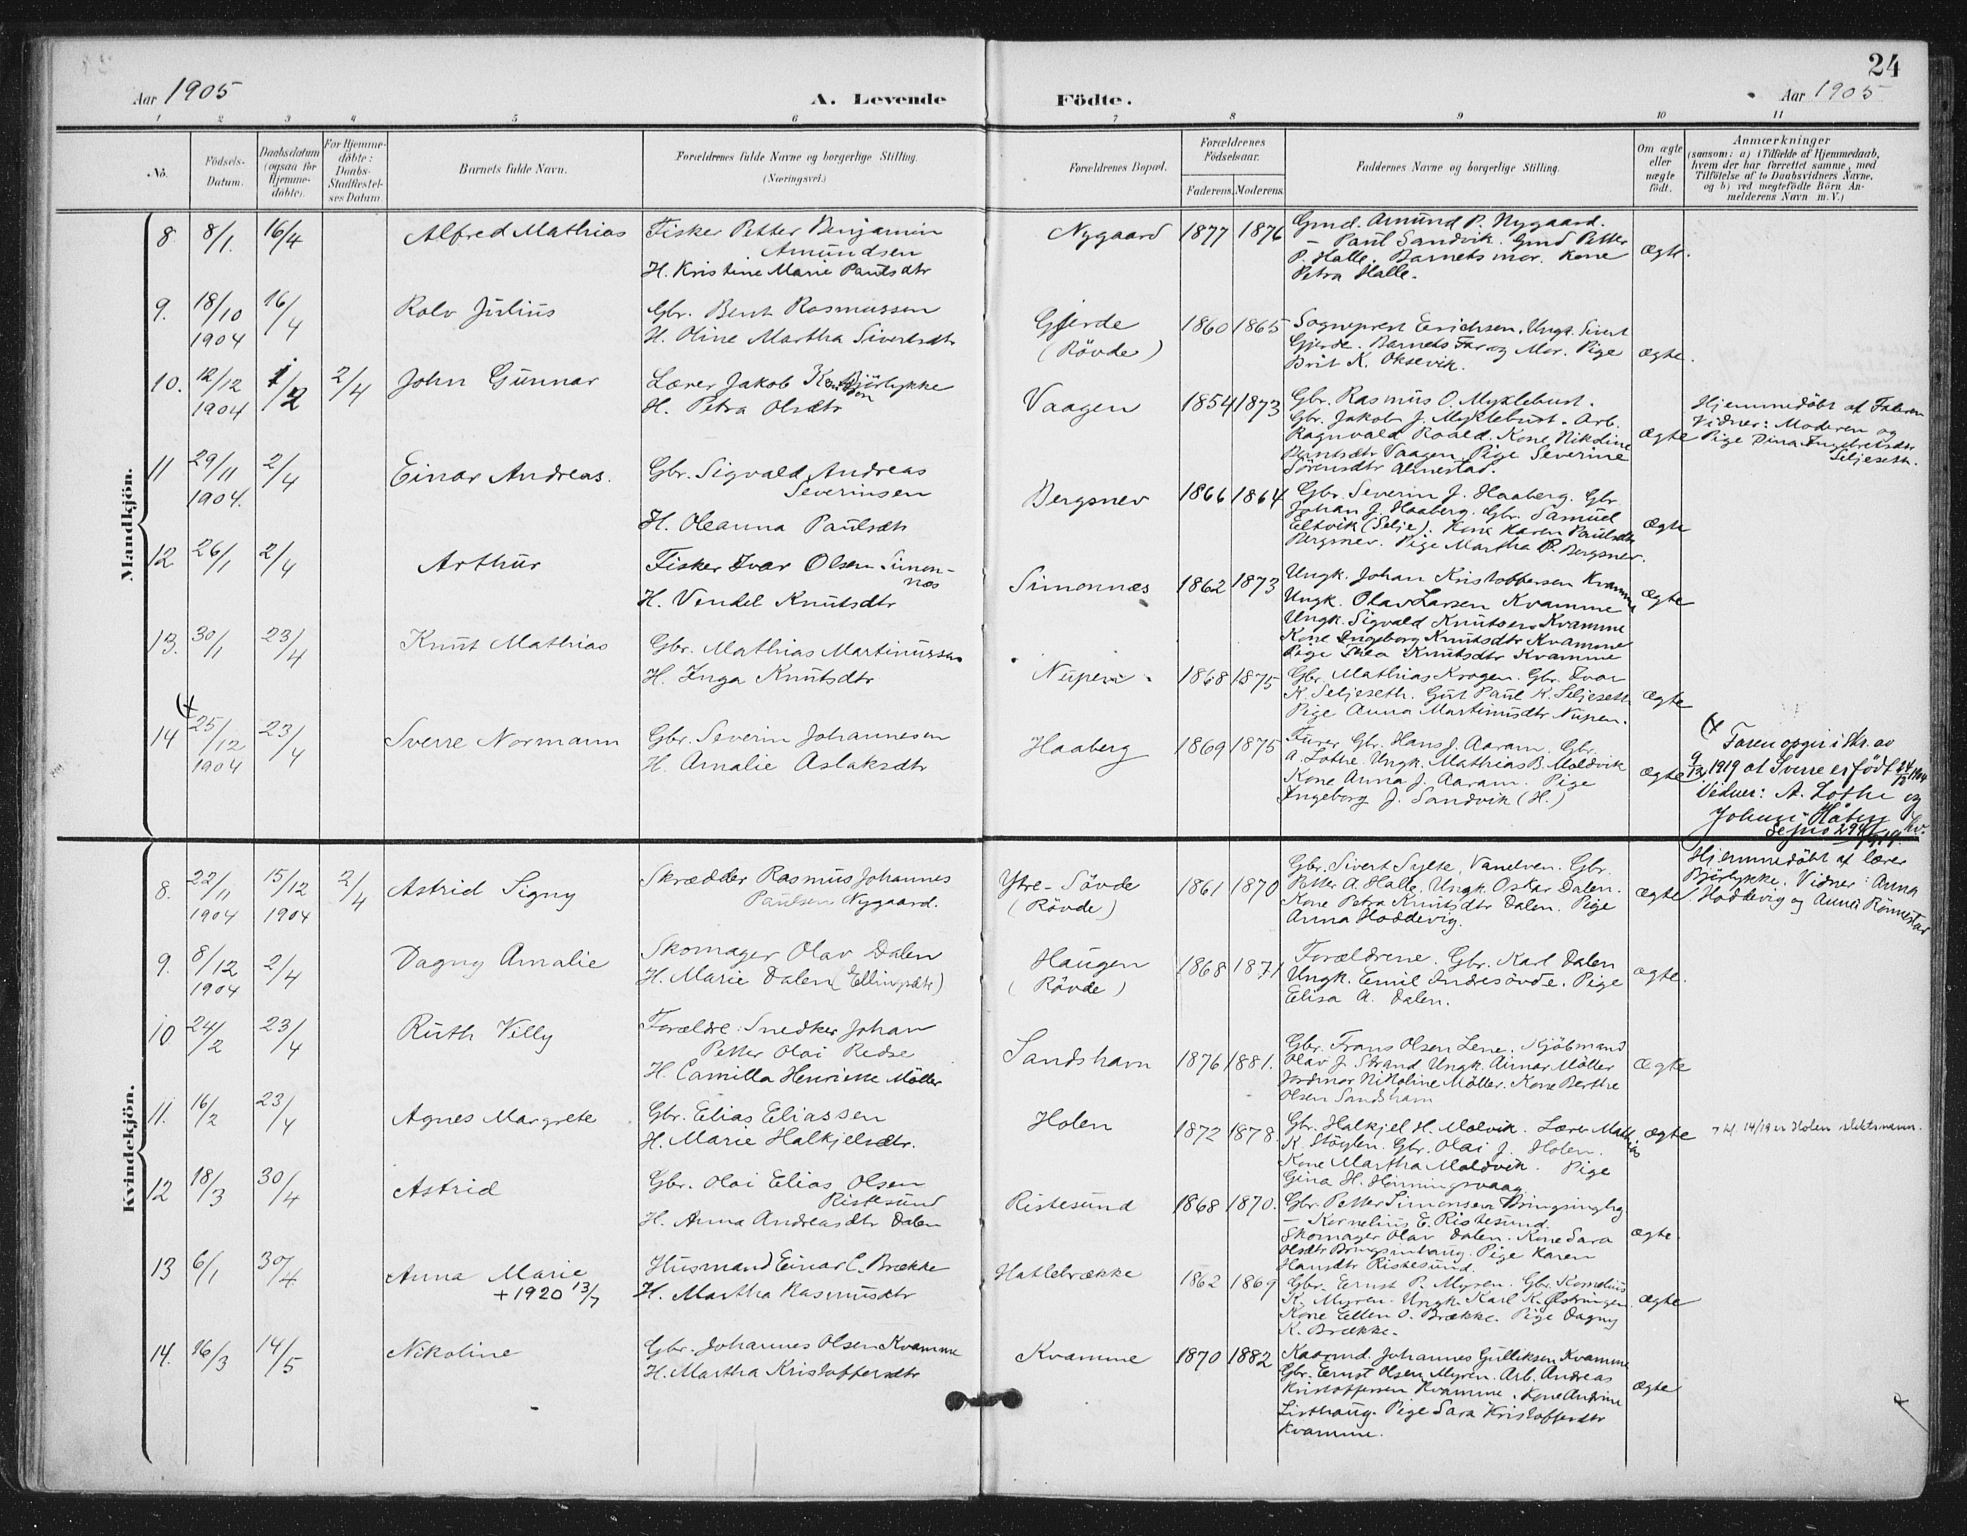 24
Aar 1905
A. Levende
Födte.
Aar 1905
1 2 3 4 5 6 7 8 9 10 11
No.
Födsels-
Datum.
Daabsdatum
(ogsaa for
Hjemme-
döbte).
For Hjemme-
döbte:
Daabs-
Stadfæstel-
ses Datum
Barnets fulde Navn.
Forældrenes fulde Navne og borgerlige Stilling.
(Næringsvei.)
Forældrenes Bopæl.
Forældrenes
Födselsaar.
Faderens.
Moderens.
Faddernes Navne og borgerlige Stilling.
Om ægte
eller
uægte
födt.
Anmærkninger
(saasom: a) i Tilfælde af Hjemmedaab,
hvem der har forrettet samme, med
Tilföielse af to Daabsvidners Navne,
og b) ved uægtefödte Börn An-
melderens Navn m. V.)
Mandkjön.
8 8/1. 16/4 Alfred Mathias
Fisker Petter Benjamin
Amundsen
H. Kristine Marie Paulsdtr
Nygaard 1877 1876
Gmd. Amund P. Nygaard.
— Paul Sandvik. Gmd Petter
P. Halle. Barnets mor. Kone
Petra Halle.
Ægte.
9. 18/10 1904 16/4 Rolv Julius
Gbr. Bent Rasmussen
H. Oline Martha Sivertsdtr
Gjerde
(Rövde)
1860 1865
Sogneprest Erichsen. Ungk. Sivert
Gjerde. Barnets Far og Mor. Pige
Brit K. Oksevik.
Ægte.
10. 12/12 1904 1/2 2/4 John Gunnar
Lærer Jakob Björlykke
H. Petra Olsdtr
Vaagen 1854 1873
Gbr. Rasmus O. Myklebust.
Gbr. Jakob J. Myklebust. Arb.
Ragnvald Roald. Kone Nikoline
Vaagen. Pige Severine
Sörensdtr Almestad.
Ægte
Hjemmedöbt af Faderen
Vidner: Moderen og
Pige Dina Ingebretsdtr
Seljeseth.
11 29/11 1904. 2/4 Einar Andreas.
Gbr. Sigvald Andreas
Severinsen
H. Oleanna Paulsdtr
Bergsnev 1866 1864
Gbr. Severin J. Haaberg. Gbr
Johan J. Haaberg. Gbr. Samuel
Eltvik (Selje). Kone Karen Paulsdtr
Bergsnev. Pige Martha P. Bergsnev.
Ægte
12 26/1 2/4 Arthur
Fisker Ivar Olsen Simon-
næs
H. Vendel Knutsdtr
Simonnæs 1862 1873
Ungk. Johan Kristoffersen Kvamme
Ungk. Olav Larsen Kvamme
Ungk. Sigvald Knutsen Kvamme
Kone Ingeborg Knutsdtr Kvamme
Pige Thea Knutsdtr Kvamme
Ægte
13. 30/1 23/4 Knut Mathias
Gbr. Mathias Martinussen
H. Inga Knutsdtr
Nupen 1868 1875
Gbr. Mathias Krogen. Gbr. Ivar
K. Seljeseth. Gut Paul K. Seljeseth
Pige Anna Martinusdtr Nupen.
Ægte
14 25/12 1904 23/4 Sverre Normann
Gbr. Severin Johannesen
H. Amalie Aslaksdtr
Haaberg 1869 1875
Furer Gbr. Hans J. Aaram. Gbr.
A. Lothe. Ungk. Mathias B. Moldvik
Kone Anna J. Aaram. Pige
Ingeborg J. Sandvik (H.)
Ægte
Faren opgir i skr. av
9/12 1919 at Sverre er födt 24/12 1904
Vidner: A. Lothe og
Johan Håberg
Kvindekjön.
8. 22/11 1904 15/12 1904 2/4 Astrid Signy
Skrædder Rasmus Johannes
Paulsen Nygaard.
Ytre-Sövde
(Rövde)
1861 1870
Gbr. Sivert Sylte, Vanelven. Gbr.
Petter A. Halle. Ungk. Oskar Dalen.
Kone Petra Knutsdtr Dalen. Pige
Anna Hoddevig.
Ægte.
Hjemmedöbt af lærer
Björlykke. Vidner: Anna
Hoddevig og Anna Rönnestad
9. 8/12 1904 2/4 Dagny Amalie
Skomager Olav Dalen
H. Marie Dalen (Ellingsdtr)
Haugen
(Rövde)
1868 1871
Forældrene. Gbr. Karl Dalen
Ungk. Emil Indresövde. Pige
Elisa A. Dalen.
Ægte.
10 24/2 23/4 Ruth Villy
Forældre: Snedker Johan
Petter Olai Redse
H. Camilla Henrikke Möller
Sandshavn 1876 1881.
Gbr. Frans Olsen Lene. Kjöbmand
Olav J. Strand. Ungk. Aimar Möller
Jordmor Nikoline Möller. Kone Berthe
Olsen Sandshavn
Ægte
11. 16/2 23/4 Agnes Margrete
Gbr. Elias Eliassen
H. Marie Halkjelsdtr.
Holen 1872 1878.
Gbr. Halkjel H. Molvik. Lærer Mathias
K. Stöylen. Gbr. Olai J. Holen.
Kone Martha Moldvik. Pige
Gina H. Honningsvaag
Ægte
14/19 er Holen slektsnavn.
12 18/3 30/4 Astrid
Gbr. Olai Elias Olsen
Ristesund
H. Anna Andreasdtr Dalen
Ristesund 1868 1870.
Gbr. Petter Simonsen Bringsinghg
— Kornelius E. Ristesund.
Skomager Olav Dalen. Kone Sara
Olsdtr Bringsinhaug. Pige Karen
Hansdtr Ristesund.
Ægte.
13 6/1 30/4 Anna Marie
+ 1920 13/7
Husmand Einar C. Brække
H. Martha Rasmusdtr
Hatlebrække 1862 1869
Gbr. Ernst P. Myren. Gbr. Kornelius
K. Myren. Ungk. Karl K. Östringen
Kone Ellen O. Brække. Pige Dagny
K. Brække.
Ægte
14. 16/3 14/5 Nikoline
Gbr. Johannes Olsen Kvamme
H. Martha Kristoffersdtr
Kvamme 1870 1882
Kaarmd. Johannes Gulliksen Kvamme
Gbr. Ernst Olsen Myren. Arb. Andreas
Kristoffersen Kvamme. Kone Andrine
Listhaug. Pige Sara Kristoffersdtr
Kvamme.
Ægte